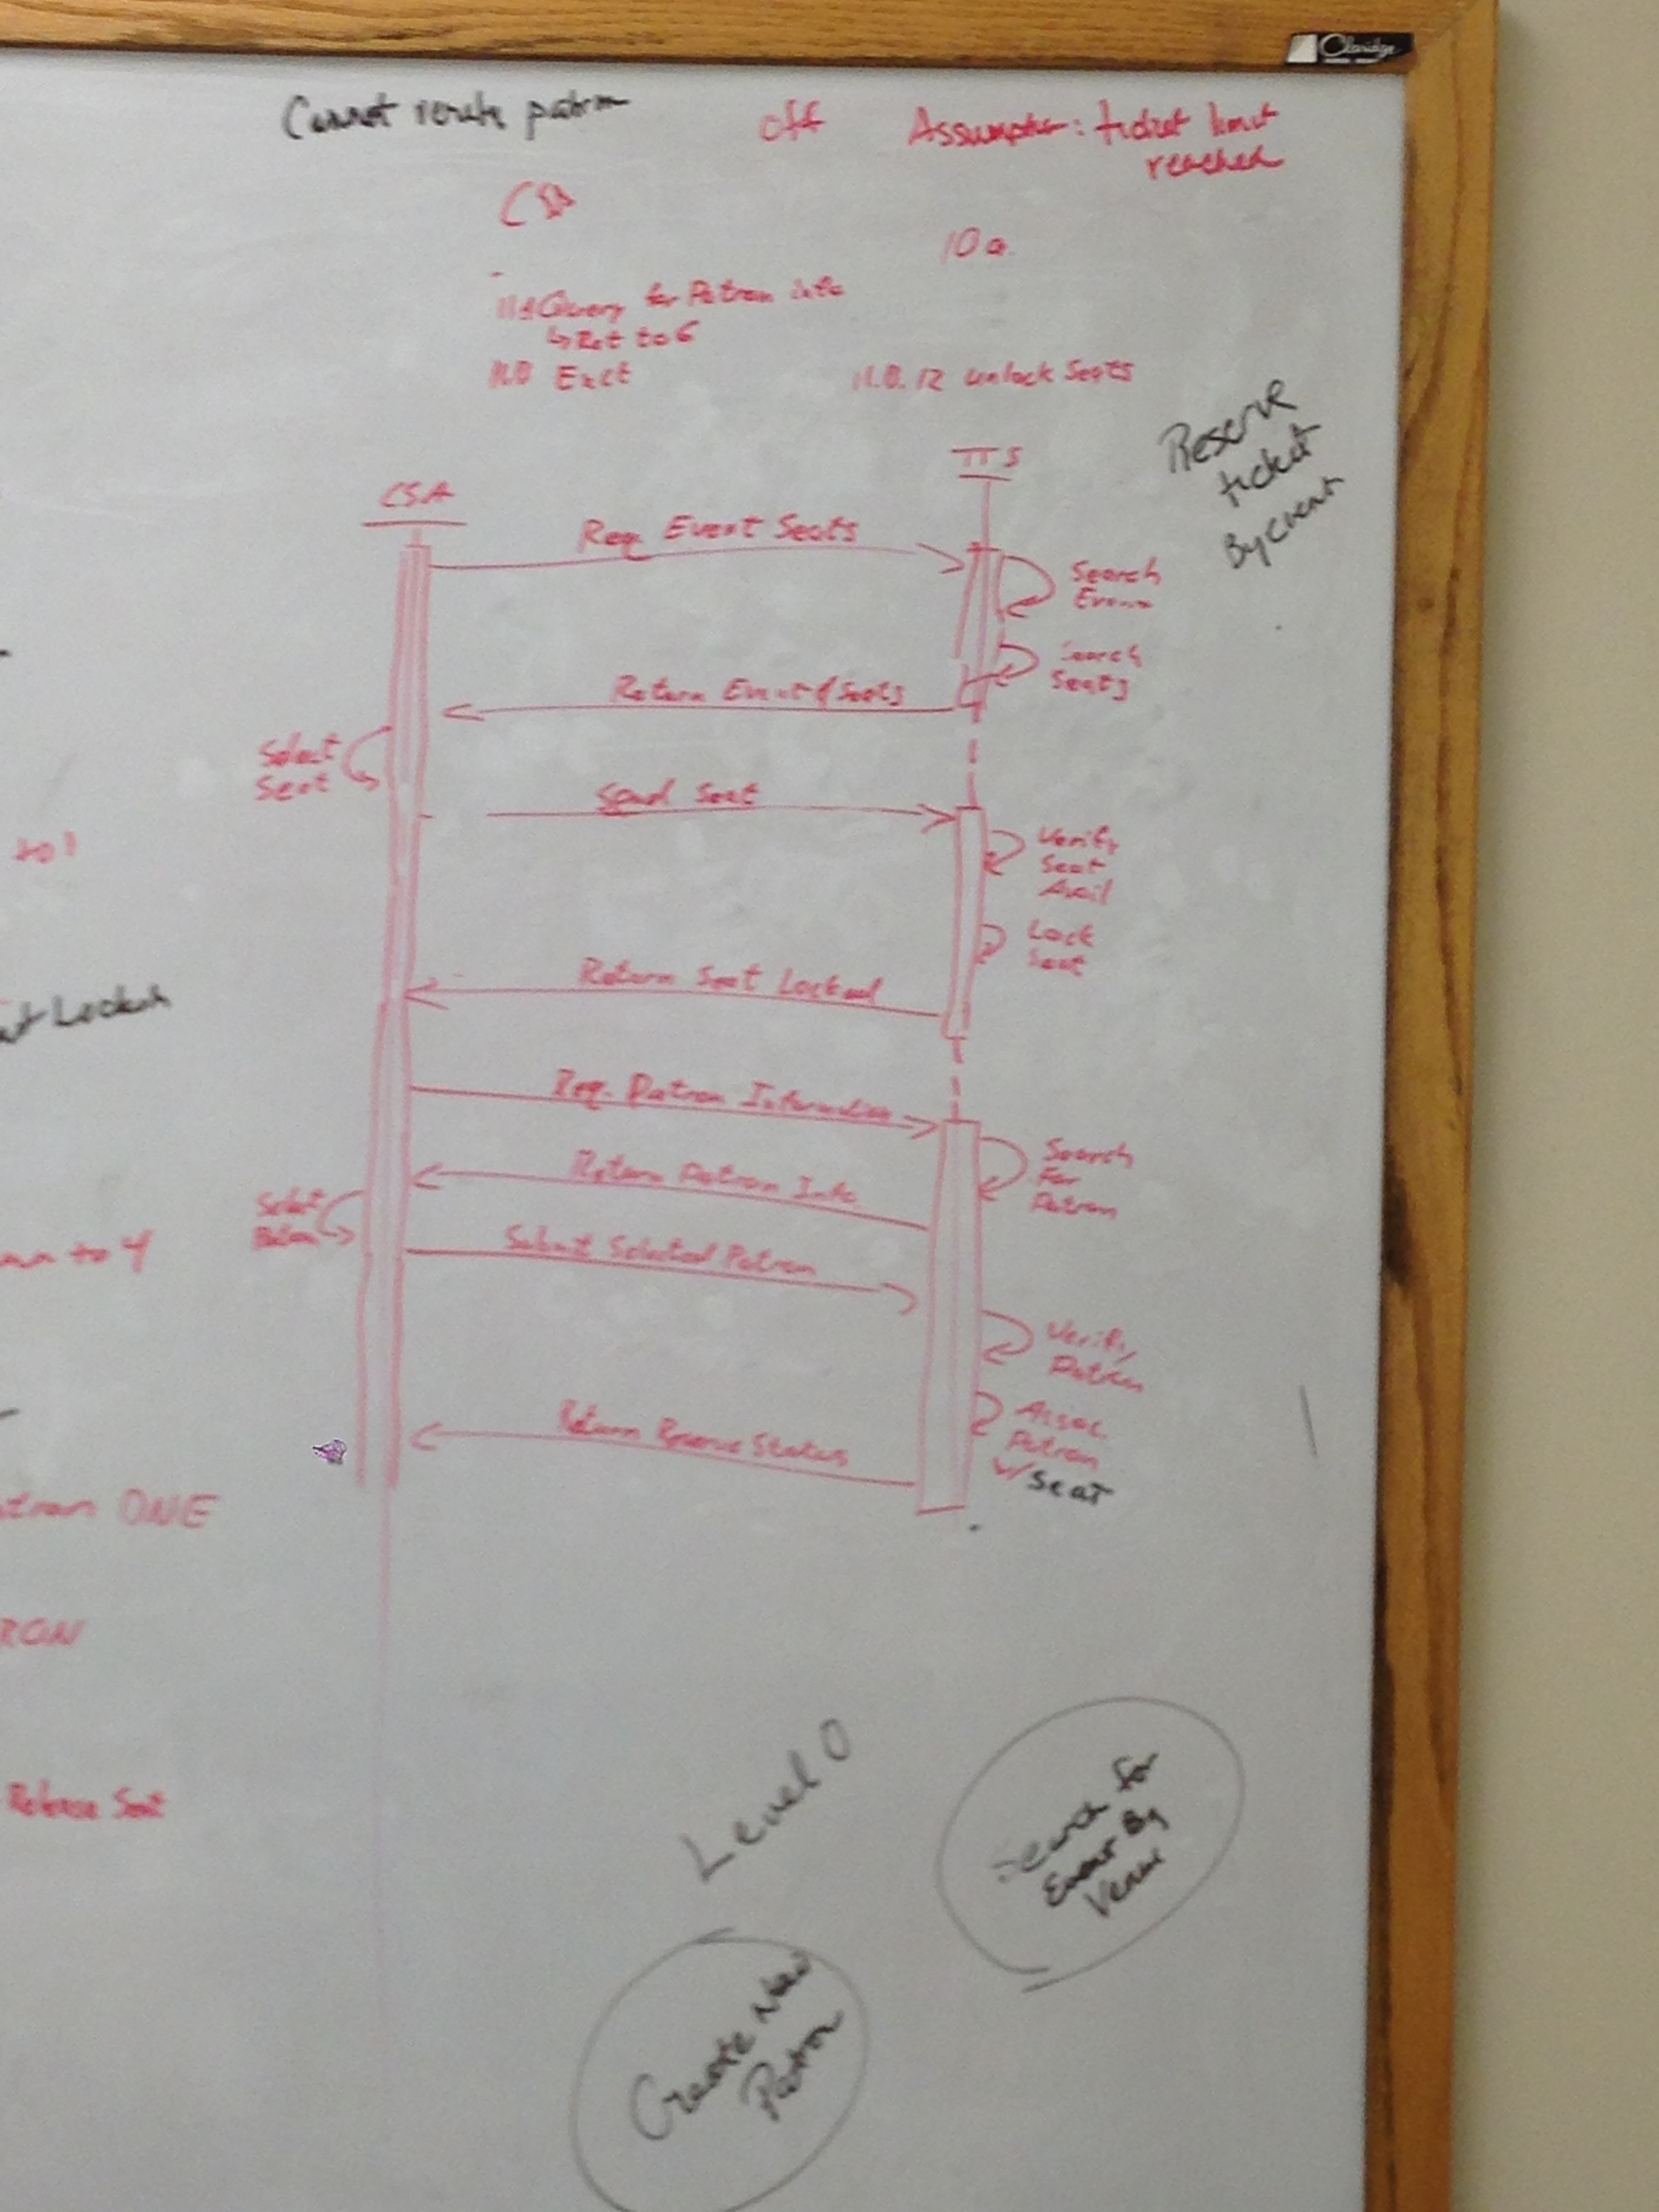 Claridge
Cannot
off
Assumption: ticket limit
reached
CSA
10a.
Query for Patron info
↳ Ret to 6
11.D Exit
11.D.12 unlock Seats
Reserve
ticket
By event
TTS
CSA
Req. Event Seats
Search
Events
Search
Seats
Return Event & Seats
Select
Seat
Send Seat
Verify
Seat
Avail
Lock
Seat
Return Seat Locked
Req. Patron Information
Search
For
Patron
Return Patron Info
Select
Patron
Submit Selected Patron
Verify
Patron
Assoc.
Patron
w/ Seat
Return Reserve Status
to 1
to 4
ONE
Release Seat
Level 0
Search for
Event By
Venue
Create New
Patron